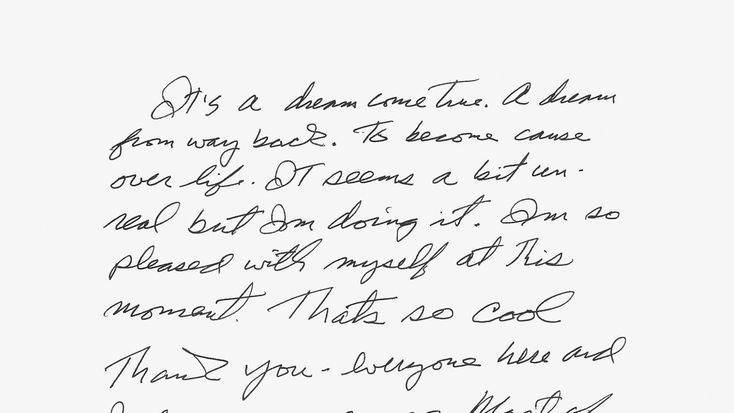 It's a dream come true. A dream
from way back. To become cause
over life. It seems a bit un-
real but Im doing it. Im so
pleased with myself at this
moment. Thats so cool
Thank you - everyone here and